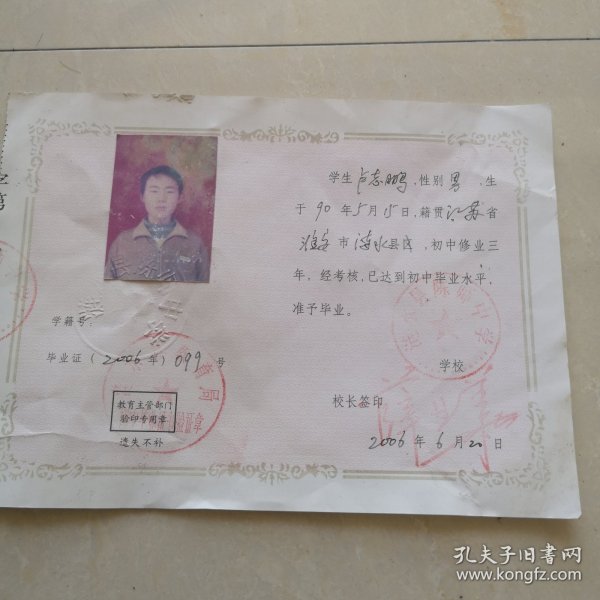 学生 卢志鹏，性别 男，生
于 90 年 5 月 15 日，籍贯 江苏 省
淮安 市 涟水 县 区，初中修业三
年，经考核，已达到初中毕业水平，
准予毕业。
学籍号：
毕业证（2006年）099 号
学校
校长签印
教育主管部门
验印专用章
遗失不补
2006 年 6 月 20 日
孔夫子旧书网
www.kongfz.com